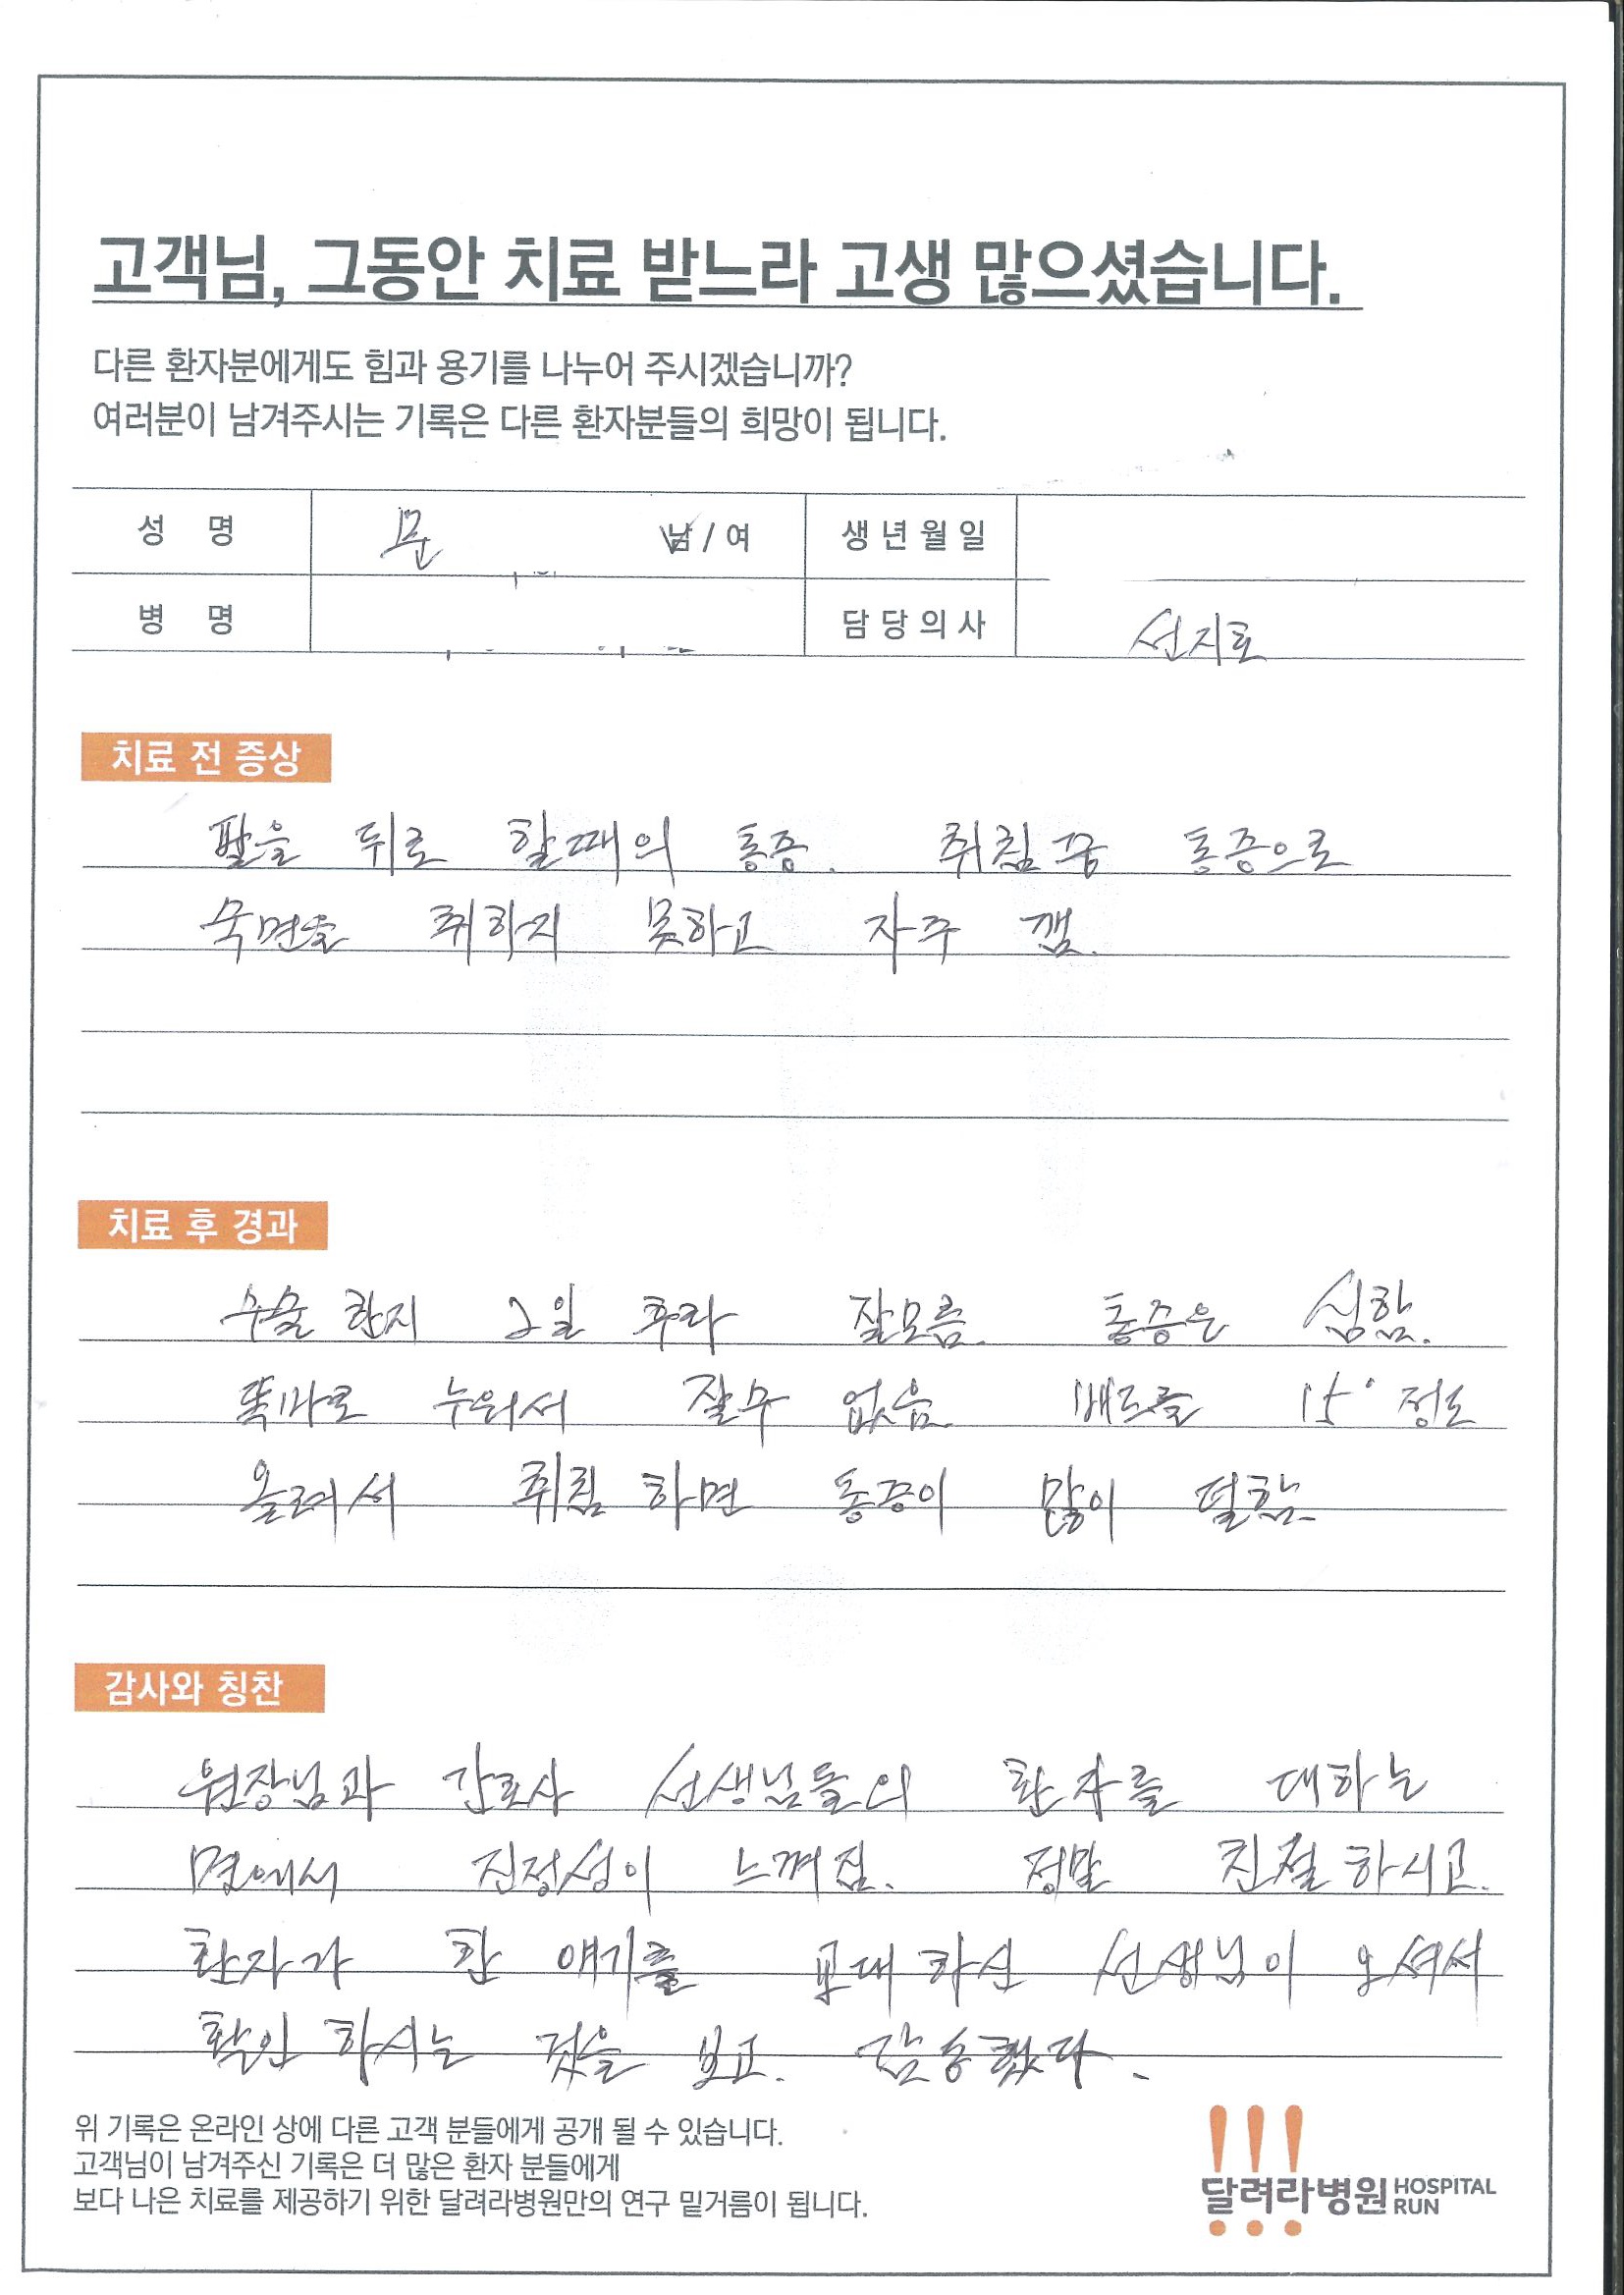 고객님, 그동안 치료 받느라 고생 많으셨습니다.
다른 환자분에게도 힘과 용기를 나누어 주시겠습니까?
여러분이 남겨주시는 기록은 다른 환자분들의 희망이 됩니다.
성 명 문 남 / 여 생년월일
병 명 담당의사 선지호
치료 전 증상
팔을 뒤로 할때의 통증. 취침중 통증으로
숙면을 취하지 못하고 자주 깸.
치료 후 경과
수술 한지 2일 후라 잘모름. 통증은 심함.
똑바로 누워서 잘수 없음. 베드를 15° 정도
올려서 취침 하면 통증이 많이 덜함.
감사와 칭찬
원장님과 간호사 선생님들의 환자를 대하는
면에서 진정성이 느껴짐. 정말 친절 하시고.
환자가 한 얘기를 교대 하신 선생님이 오셔서
확인 하시는 것을 보고. 감동했다.
위 기록은 온라인 상에 다른 고객 분들에게 공개 될 수 있습니다.
고객님이 남겨주신 기록은 더 많은 환자 분들에게
보다 나은 치료를 제공하기 위한 달려라병원만의 연구 밑거름이 됩니다.
달려라병원 HOSPITAL RUN